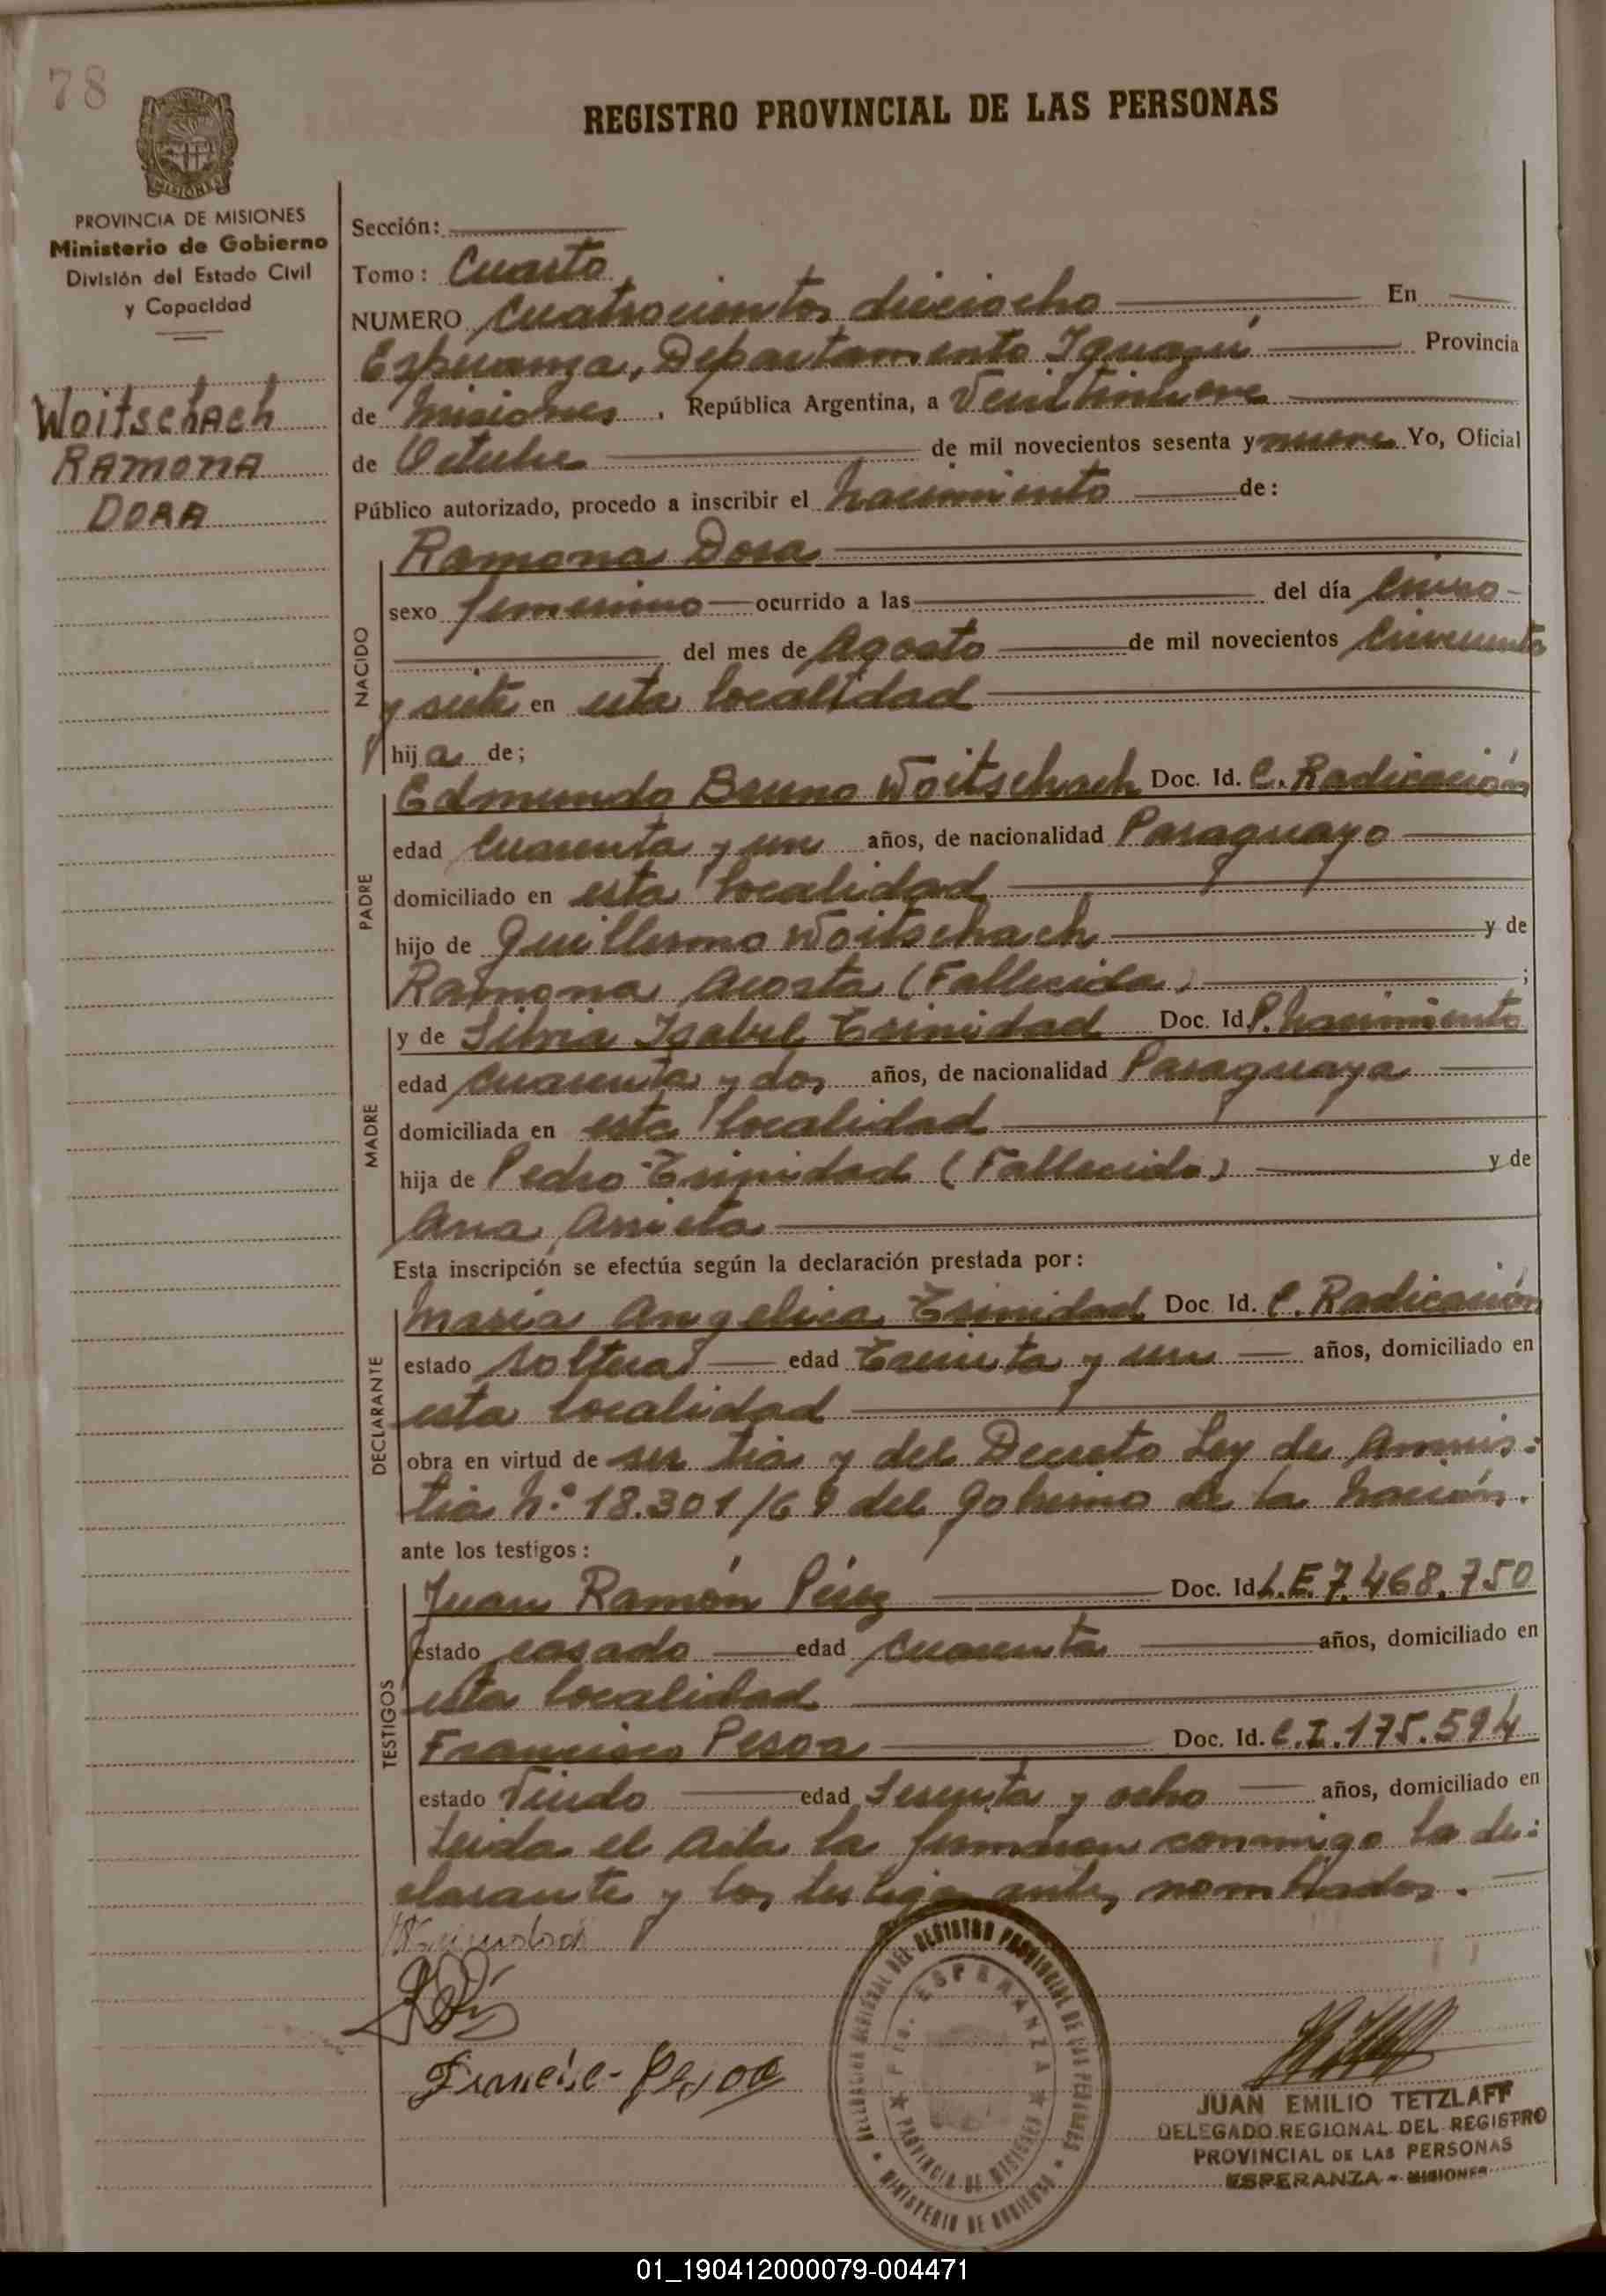 78
REGISTRO PROVINCIAL DE LAS PERSONAS
MISIONES
PROVINCIA DE MISIONES
Ministerio de Gobierno
División del Estado Civil
y Capacidad
Woitschach
Ramona
Dora
Sección:
Tomo: Cuarto
NUMERO Cuatrocientos dieciocho En
Esperanza, Departamento Iguazú Provincia
de Misiones, República Argentina, a Veintinueve
de Octubre de mil novecientos sesenta y nueve Yo, Oficial
Público autorizado, procedo a inscribir el nacimiento de:
NACIDO
Ramona Dora
sexo femenino ocurrido a las del día cinco
del mes de Agosto de mil novecientos cincuenta
y siete en esta localidad
hija de;
PADRE
Edmundo Bruno Woitschach Doc. Id. C. Radicación
edad cuarenta y un años, de nacionalidad Paraguayo
domiciliado en esta localidad
hijo de Guillermo Woitschach y de
Ramona Acosta (Fallecida);
MADRE
y de Silvia Isabel Trinidad Doc. Id P. nacimiento
edad cuarenta y dos años, de nacionalidad Paraguaya
domiciliada en esta localidad
hija de Pedro Trinidad (Fallecido) y de
Ana Arrieta
Esta inscripción se efectúa según la declaración prestada por:
DECLARANTE
Maria Angelica Trinidad Doc. Id. C. Radicación
estado soltera edad Treinta y un años, domiciliado en
esta localidad
obra en virtud de ser tia y del Decreto Ley de Amnis-
tia N.° 18.301/69 del Gobierno de la Nación.
ante los testigos:
TESTIGOS
Juan Ramón Pérez Doc. Id L.E. 7.468.750
estado casado edad cuarenta años, domiciliado en
esta localidad
Francisco Pesoa Doc. Id. C.I. 175.594
estado Viudo edad Sesenta y ocho años, domiciliado en
Leida el Acta la firmaron conmigo la de-
clarante y los testigos antes nombrados.
Francisc- Pesoa
DELEGACION REGIONAL DEL REGISTRO PROVINCIAL DE LAS PERSONAS
Pto. ESPERANZA
PROVINCIA DE MISIONES
MINISTERIO DE GOBIERNO
JUAN EMILIO TETZLAFF
DELEGADO REGIONAL DEL REGISTRO
PROVINCIAL DE LAS PERSONAS
ESPERANZA - MISIONES
01_190412000079-004471